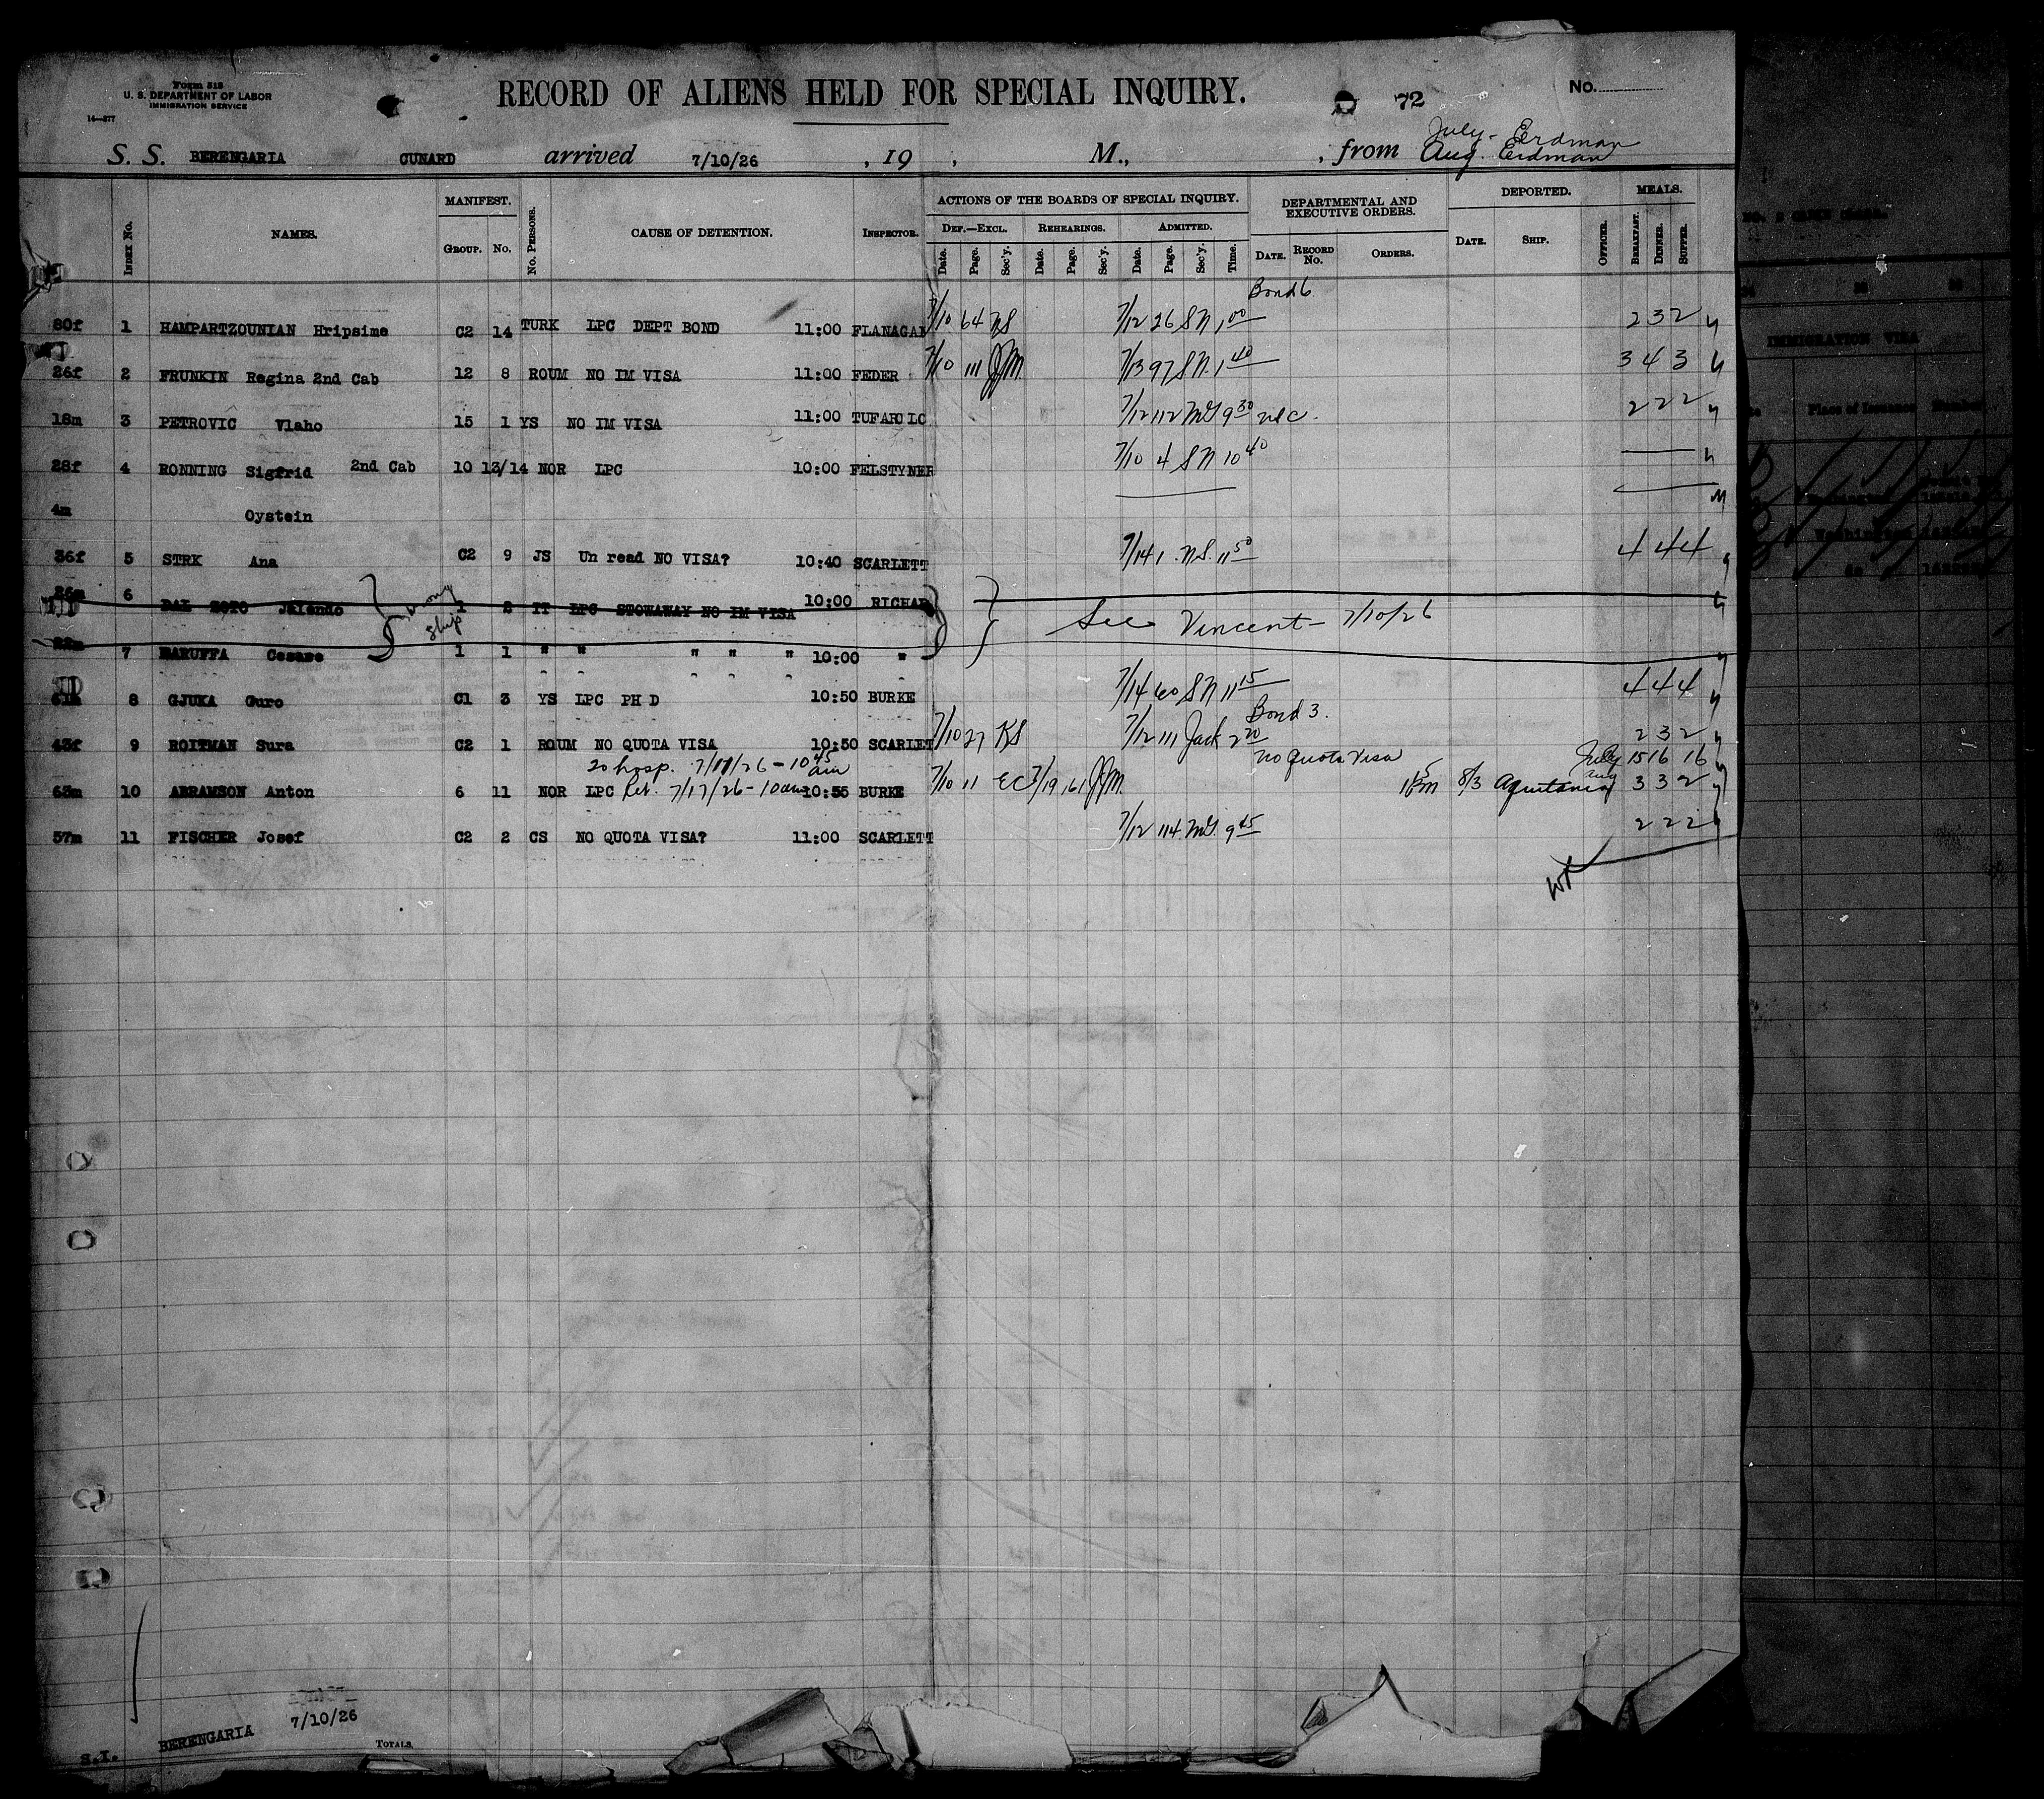 Form 518
U. S. DEPARTMENT OF LABOR
IMMIGRATION SERVICE
14—877
RECORD OF ALIENS HELD FOR SPECIAL INQUIRY.
72
No.
S. S. BERENGARIA CUNARD arrived 7/10/26 , 19 , M., , from July - Erdman
Aug. Erdman
INDEX NO. NAMES. MANIFEST. GROUP. NO. NO. PERSONS. CAUSE OF DETENTION. INSPECTOR. ACTIONS OF THE BOARDS OF SPECIAL INQUIRY. DEPARTMENTAL AND EXECUTIVE ORDERS. DEPORTED. MEALS.
DEF.—EXCL. REHEARINGS. ADMITTED.
Date. Page. Sec'y. Date. Page. Sec'y. Date. Page. Sec'y. Time. DATE. RECORD NO. ORDERS. DATE. SHIP. OFFICER. BREAKFAST. DINNER. SUPPER.
Bond 6
80f 1 HAMPARTZOUNIAN Hripsime C2 14 TURK LPC DEPT BOND 11:00 FLANAGAN 7/10 64 NS 7/12 26 SN 1 00 2 3 2
26f 2 FRUNKIN Regina 2nd Cab 12 8 ROUM NO IM VISA 11:00 FEDER 7/10 111 JJM 7/13 97 SN 1 40 3 4 3
18m 3 PETROVIC Vlaho 15 1 YS NO IM VISA 11:00 TUFAROLO 7/12 112 MG 9 30 2 2 2
28f 4 RONNING Sigfrid 2nd Cab 10 13/14 NOR LPC 10:00 FELSTYNER 7/10 4 SN 10 40
4m Oystein
36f 5 STRK Ana C2 9 JS Un read NO VISA? 10:40 SCARLETT 7/14 1 NS 11 50 4 4 4
26m 6 DAL ZOTO Jelendo 1 2 IT LPC STOWAWAY NO IM VISA 10:00 RICHAR
wrong ship
See Vincent - 7/10/26
22m 7 BARUFFA Cesare 1 1 " " " " " 10:00 "
61m 8 GJUKA Guro C1 3 YS LPC PH D 10:50 BURKE 7/14 60 SN 11 15 4 4 4
Bond 3.
43f 9 ROITMAN Sura C2 1 ROUM NO QUOTA VISA 10:50 SCARLET 7/10 27 KS 7/12 111 Jack 2 20 2 3 2
To hosp. 7/11/26 - 10 45 am No Quota Visa July 15 16 16
63m 10 ABRAMSON Anton 6 11 NOR LPC Ret. 7/17/26 - 10am 10:55 BURKE 7/10 11 EC 7/19 161 JJM 8/3 Aquitania Aug 3 3 2
57m 11 FISCHER Josef C2 2 CS NO QUOTA VISA? 11:00 SCARLETT 7/12 114 MG 9 45 2 2 2
S.I. BERENGARIA 7/10/26
TOTALS.
IMMIGRATION VISA
Place of Issuance Number